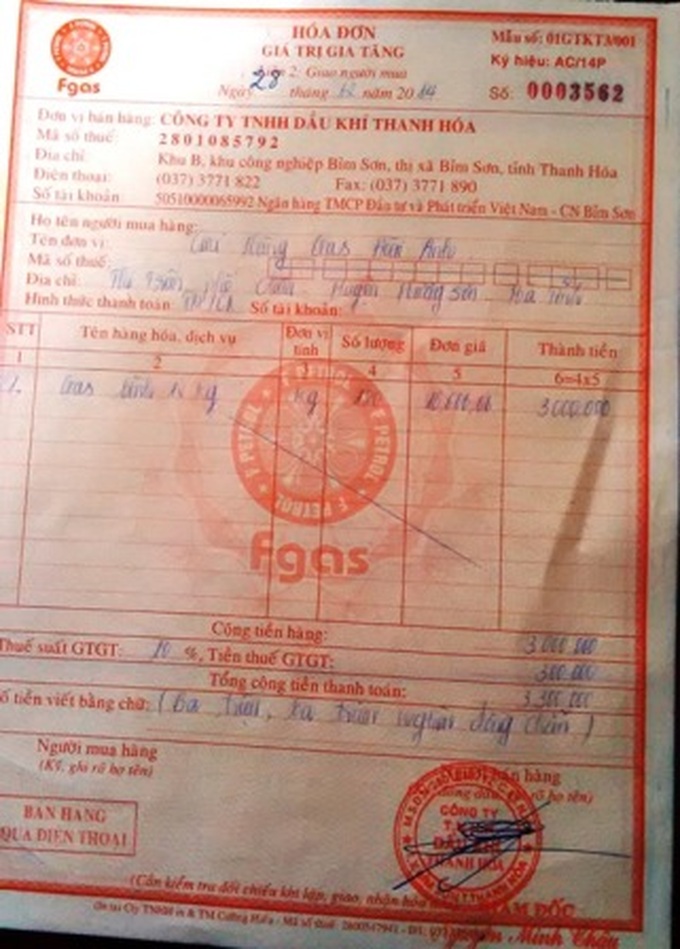 Fgas
HÓA ĐƠN
GIÁ TRỊ GIA TĂNG
Liên 2: Giao người mua
Ngày 28 tháng 12 năm 2014
Mẫu số: 01GTKT3/001
Ký hiệu: AC/14P
Số: 0003562
Đơn vị bán hàng: CÔNG TY TNHH DẦU KHÍ THANH HÓA
Mã số thuế: 2801085792
Địa chỉ: Khu B, khu công nghiệp Bỉm Sơn, thị xã Bỉm Sơn, tỉnh Thanh Hóa
Điện thoại: (037) 3771 822 Fax: (037) 3771 890
Số tài khoản: 50510000065992 Ngân hàng TMCP Đầu tư và Phát triển Việt Nam - CN Bỉm Sơn
Họ tên người mua hàng:
Tên đơn vị: Cửa hàng Gas
Mã số thuế:
Địa chỉ: Thị trấn Phố Châu - Huyện Hương Sơn - Hà Tĩnh
Hình thức thanh toán: TM/CK Số tài khoản:
STT Tên hàng hóa, dịch vụ Đơn vị tính Số lượng Đơn giá Thành tiền
1 2 3 4 5 6=4x5
Gas bình 12 kg kg 3.000.000
F PETROL
Fgas
Cộng tiền hàng: 3.000.000
Thuế suất GTGT: 10 %, Tiền thuế GTGT: 300.000
Tổng cộng tiền thanh toán: 3.300.000
Số tiền viết bằng chữ: (Ba triệu, ba trăm nghìn đồng chẵn)
Người mua hàng
(Ký, ghi rõ họ tên)
bán hàng
rõ họ tên)
BÁN HÀNG
QUA ĐIỆN THOẠI
CÔNG TY
DẦU KHÍ
THANH HÓA
(Cần kiểm tra đối chiếu khi lập, giao, nhận hóa
GIÁM ĐỐC
Nguyễn Minh